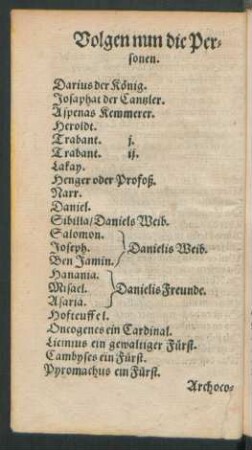 Volgen nun die Per-
sonen.
Darius der König.
Josaphat der Cantzler.
Aspenas Kemmerer.
Heroldt.
Trabant. j.
Trabant. ij.
Lakay.
Henger oder Profoß.
Narr.
Daniel.
Sibilla/ Daniels Weib.
Salomon.
Joseph. Danielis Weib.
Ben Jamin.
Hanania.
Misael. Danielis Freunde.
Asaria.
Hofteuffel.
Oncogenes ein Cardinal.
Licinius ein gewaltiger Fürst.
Cambyses ein Fürst.
Pyromachus ein Fürst.
Archoco-